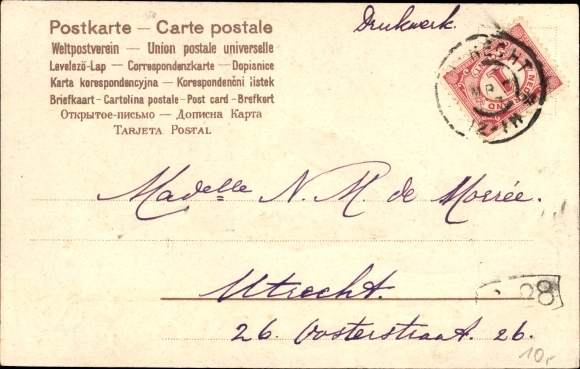 Drukwerk.
Postkarte — Carte postale
Weltpostverein — Union postale universelle
Levelező-Lap — Correspondenzkarte — Dopisnice
Karta korespondencyjna — Korespondenční lístek
Briefkaart - Cartolina postale - Post card - Brefkort
Открытое-письмо — Дописна Карта
TARJETA POSTAL
Madelle N. M. de Morrée.
Utrecht.
26. Oosterstraat. 26.
28
10,-